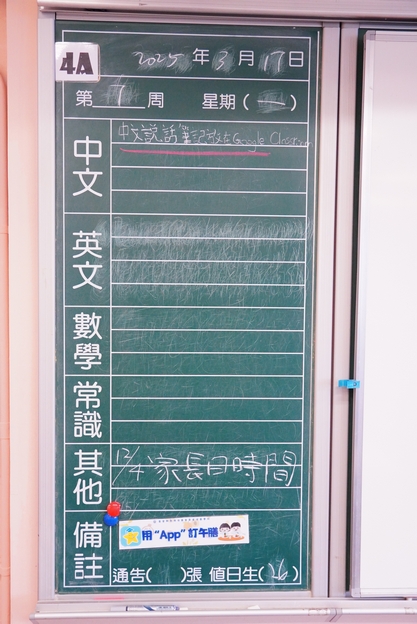 4A
2025年3月17日
第7周 星期(一)
中文
中文説話筆記放在Google Classroom
英文
數學
常識
其他
12/4家長日時間
備註
用“App”訂午膳
通告( )張 值日生(26)